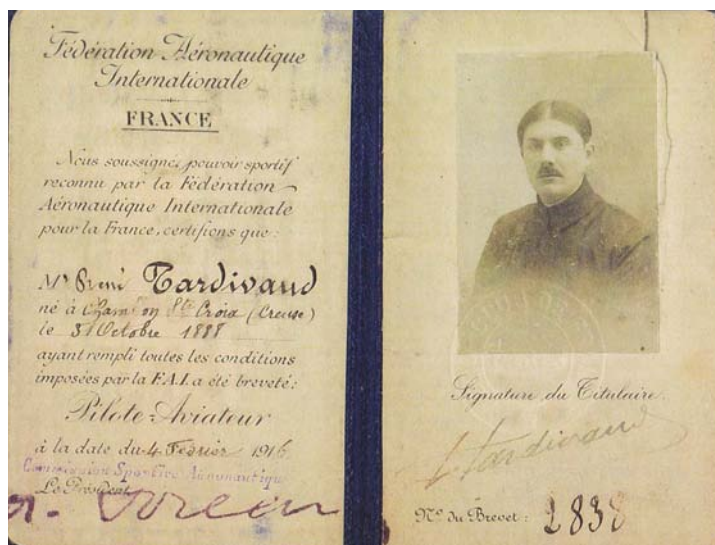 Fédération Aéronautique
Internationale
FRANCE
Nous soussignés, pouvoir sportif
reconnu par la Fédération
Aéronautique Internationale
pour la France, certifions que :
Mr René Tardivaud
né à Chambon Ste Croix (Creuse)
le 31 Octobre 1888
ayant rempli toutes les conditions
imposées par la F.A.I. a été breveté :
Pilote-Aviateur
à la date du 4 Février 1916
Commission Sportive Aéronautique
Le Président
Signature du Titulaire.
Tardivaud
No du Brevet : 2838